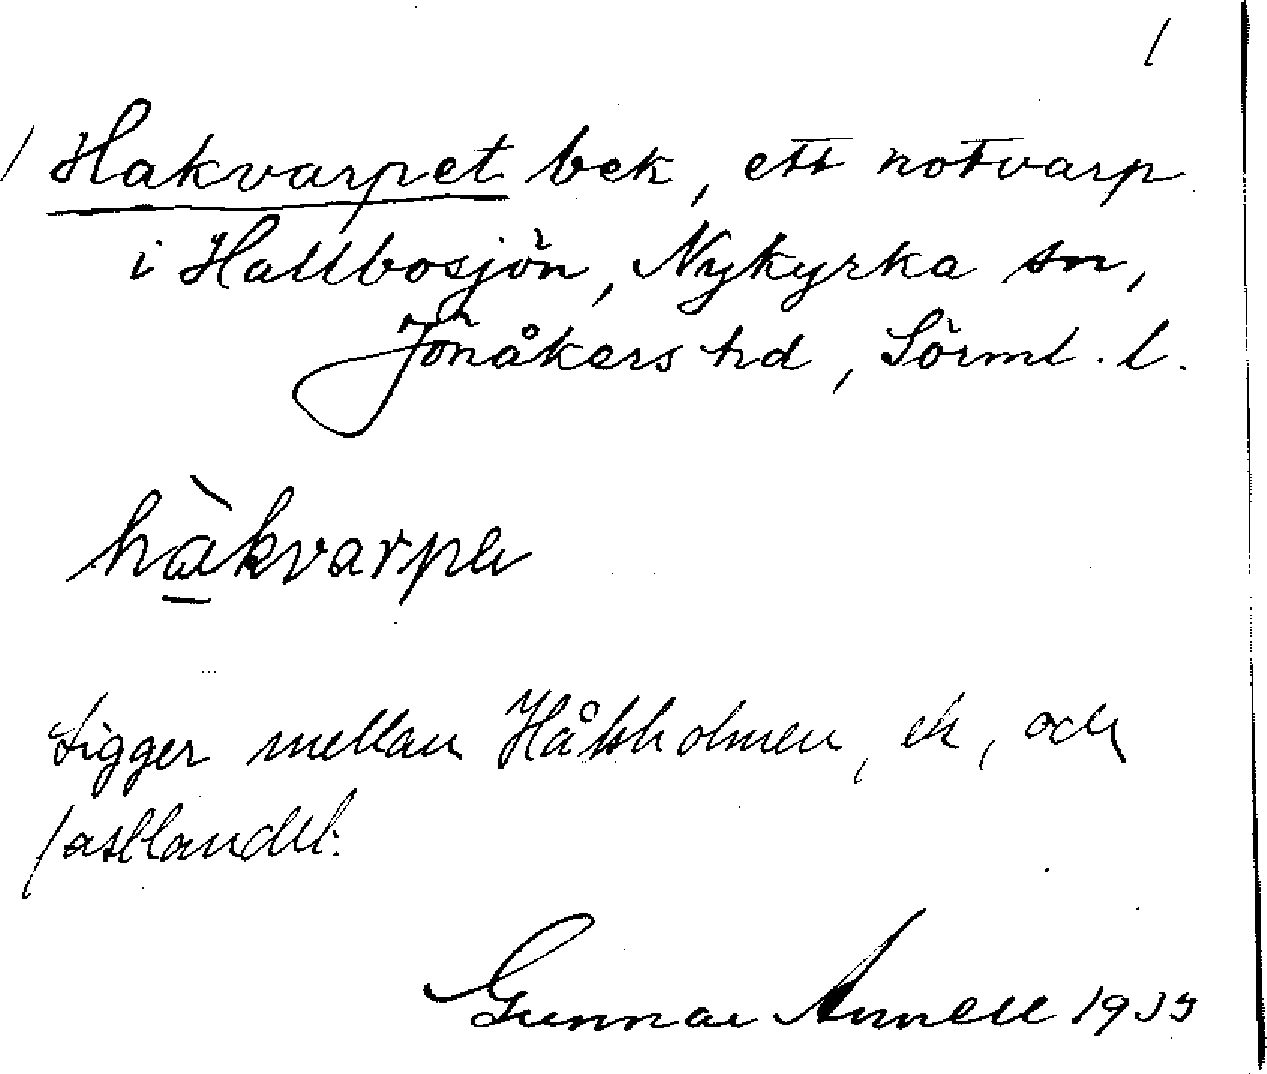 /
/ Hakvarpet bek, ett notvarp
i Hallbosjön, Nykyrka sn,
Jönåkers hd, Sörml. l.
hàkvarpe
Ligger mellan Håkholmen, ek, och
fastlandet.
Gunnar Annell 1935